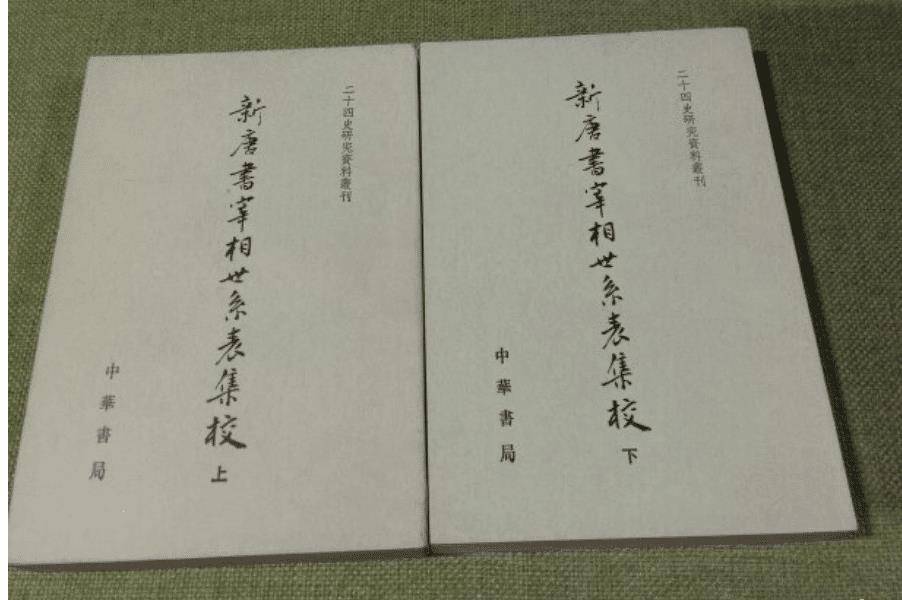 二十四史研究資料叢刊
新唐書宰相世系表集校
上
中華書局
二十四史研究資料叢刊
新唐書宰相世系表集校
下
中華書局